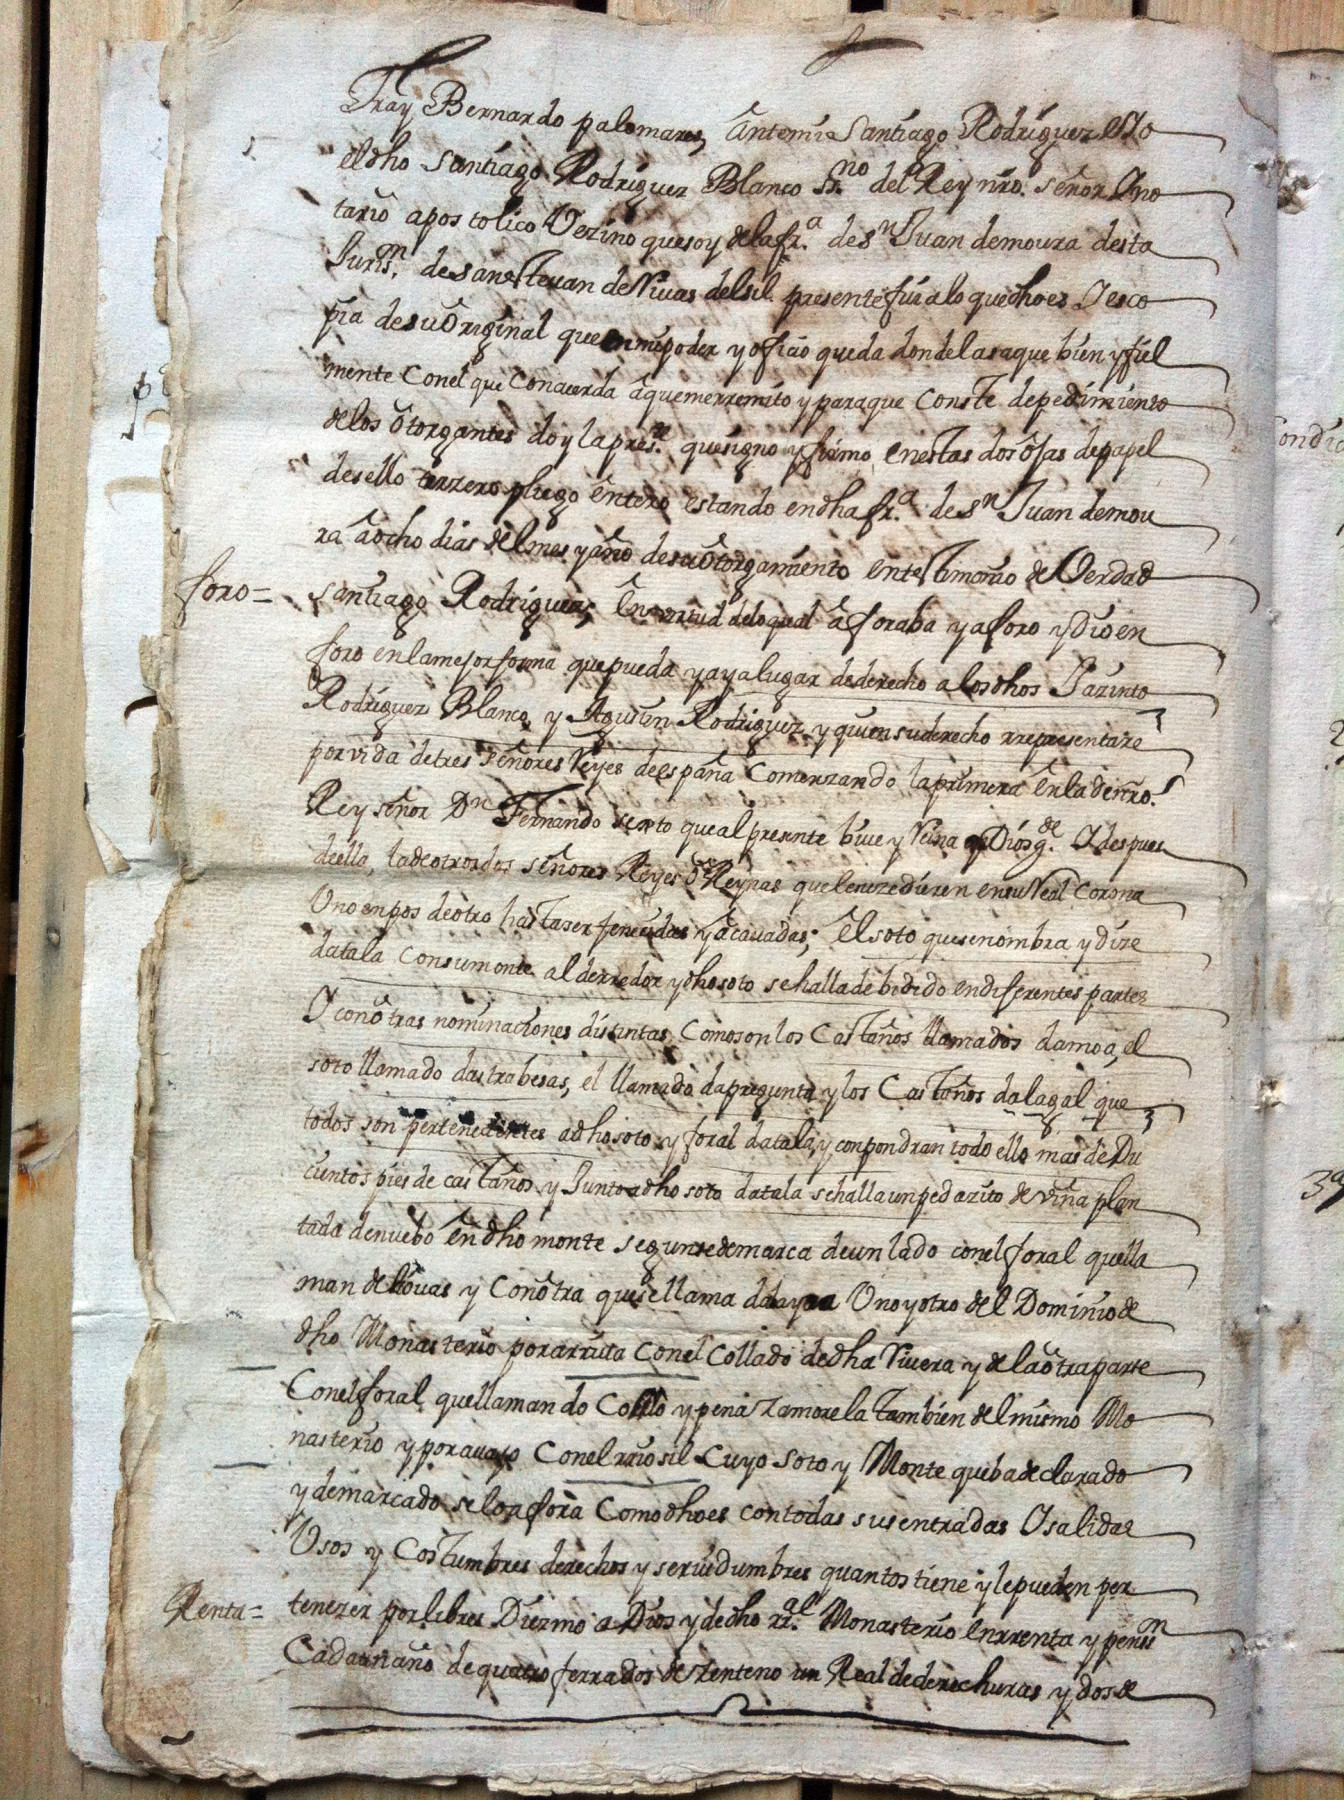 Fray Bernardo palomares, ântemi Santiago Rodriguez = Yo
el dho Santiago Rodriguez Blanco ss.no del Rey nro. señor Y no
tario apostolico Vezino que soy de la fr.a de sn Juan de moura desta
Juris.n de san esteuan de Riuas del sil presente fui a lo que dho es Y es co
pia de su Original que en mi poder y oficio queda donde la saque bien y fiel
mente con el que concuerda â que me rremito y para que conste de pedimiento
de los ôtorgantes doy la pres.te que signo y firmo en estas dos ôjas de papel
de sello terzero pliego êntero estando en dha fr.a de sn Juan de mou
ra â ôcho dias del mes y âño de su ôtorgamiento en testimonio de Verdad
foro = Santiago Rodriguez; En virtud de lo qual âforaba y aforo y dio en
foro en la mejor forma que pueda y aya lugar de derecho a los dhos Jazinto
Rodriguez Blanco, y Agustin Rodriguez y quien su derecho rrepresentare
por vida de tres señores Reyes de españa Comenzando la primera ên la de nro.
Rey señor Dn Fernando sexto que al presente biue y Reina q Dios g.de Y despues
de ella, la de otros dos señores Reyes ô Reynas que le suzedieren en su Real Corona
Uno en pos de otro hasta ser fenecidas y âcauadas; êl soto que se nombra y dize
datala con su monte al derredor y dho soto se halla debidido en diferentes partes
Y con ôtras nominaciones distintas, Como son los Castaños llamados damoa, el
soto llamado das trabesas, el llamado da pregunta y los Castaños dalagal que
todos son pertenecientes a dho soto y foral datala, y conpondran todo ello mas de Du
cientos pies de castaños y Junto a dho soto datala se halla un pedazito de viña plan
tada de nuebo ên dho monte segun se demarca de un lado con el foral que lla
man de Couas y con ôtra que se llama Uno y otro del Dominio de
dho Monasterio por arriua con el Collado de dha Riuera y de la ôtra parte
Con el foral que llaman do Collo y pena zamorela tambien del mismo Mo
nasterio y por auajo con el rrio sil Cuyo Soto y Monte que ba declarado
y demarcado se lo afora Como dho es con todas sus entradas Y salidas
Usos y Costumbres derechos y seruidumbres quantos tiene y le pueden per
Renta = tenezer por libres Diezmo a Dios y de dho rr.al Monasterio en rrenta y pens.n
Cada un año de quatro ferrados de zenteno un Real de derechuras y dos de